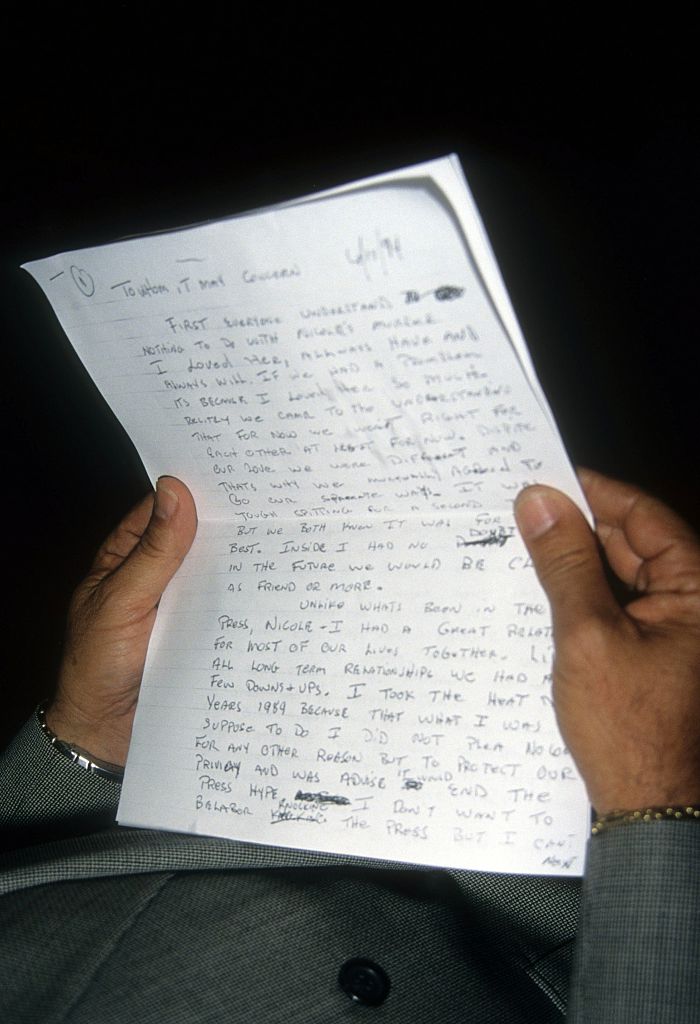 ①
TO WHOM IT MAY CONCERN 6/17/94
FIRST EVERYONE UNDERSTAND
NOTHING TO DO WITH NICOLE'S MURDER
I LOVED HER, ALLWAYS HAVE AND
ALWAYS WILL. IF WE HAD A PROBLEM
ITS BECAUSE I LOVED HER SO MUCH.
WE CAME TO THE UNDERSTANDING
THAT FOR NOW WE RIGHT FOR
EACH OTHER AT LEAST FOR NOW. DISPITE
OUR LOVE WE WERE DIFFERENT AND
THATS WHY WE AGREED TO
GO OUR WAYS. IT WAS
TOUGH SPITTING FOR A SECOND
BUT WE BOTH KNOW IT WAS FOR
BEST. INSIDE I HAD NO DOUBT
IN THE FUTURE WE WOULD BE CL
AS FRIEND OR MORE.
UNLIKE WHATS BEEN IN THE
PRESS, NICOLE + I HAD A GREAT RELAT
FOR MOST OF OUR LIVES TOGETHER. LI
ALL LONG TERM RELATIONSHIPS WE HAD A
FEW DOWNS + UPS. I TOOK THE HEAT N
YEARS 1989 BECAUSE THAT WHAT I WAS
SUPPOSE TO DO I DID NOT PLEA NO CO
FOR ANY OTHER REASON BUT TO PROTECT OUR
PRIVICY AND WAS ADVISE IT WOULD END THE
PRESS HYPE. I DON'T WANT TO
BELABOR KNOCKING THE PRESS BUT I CAN'T